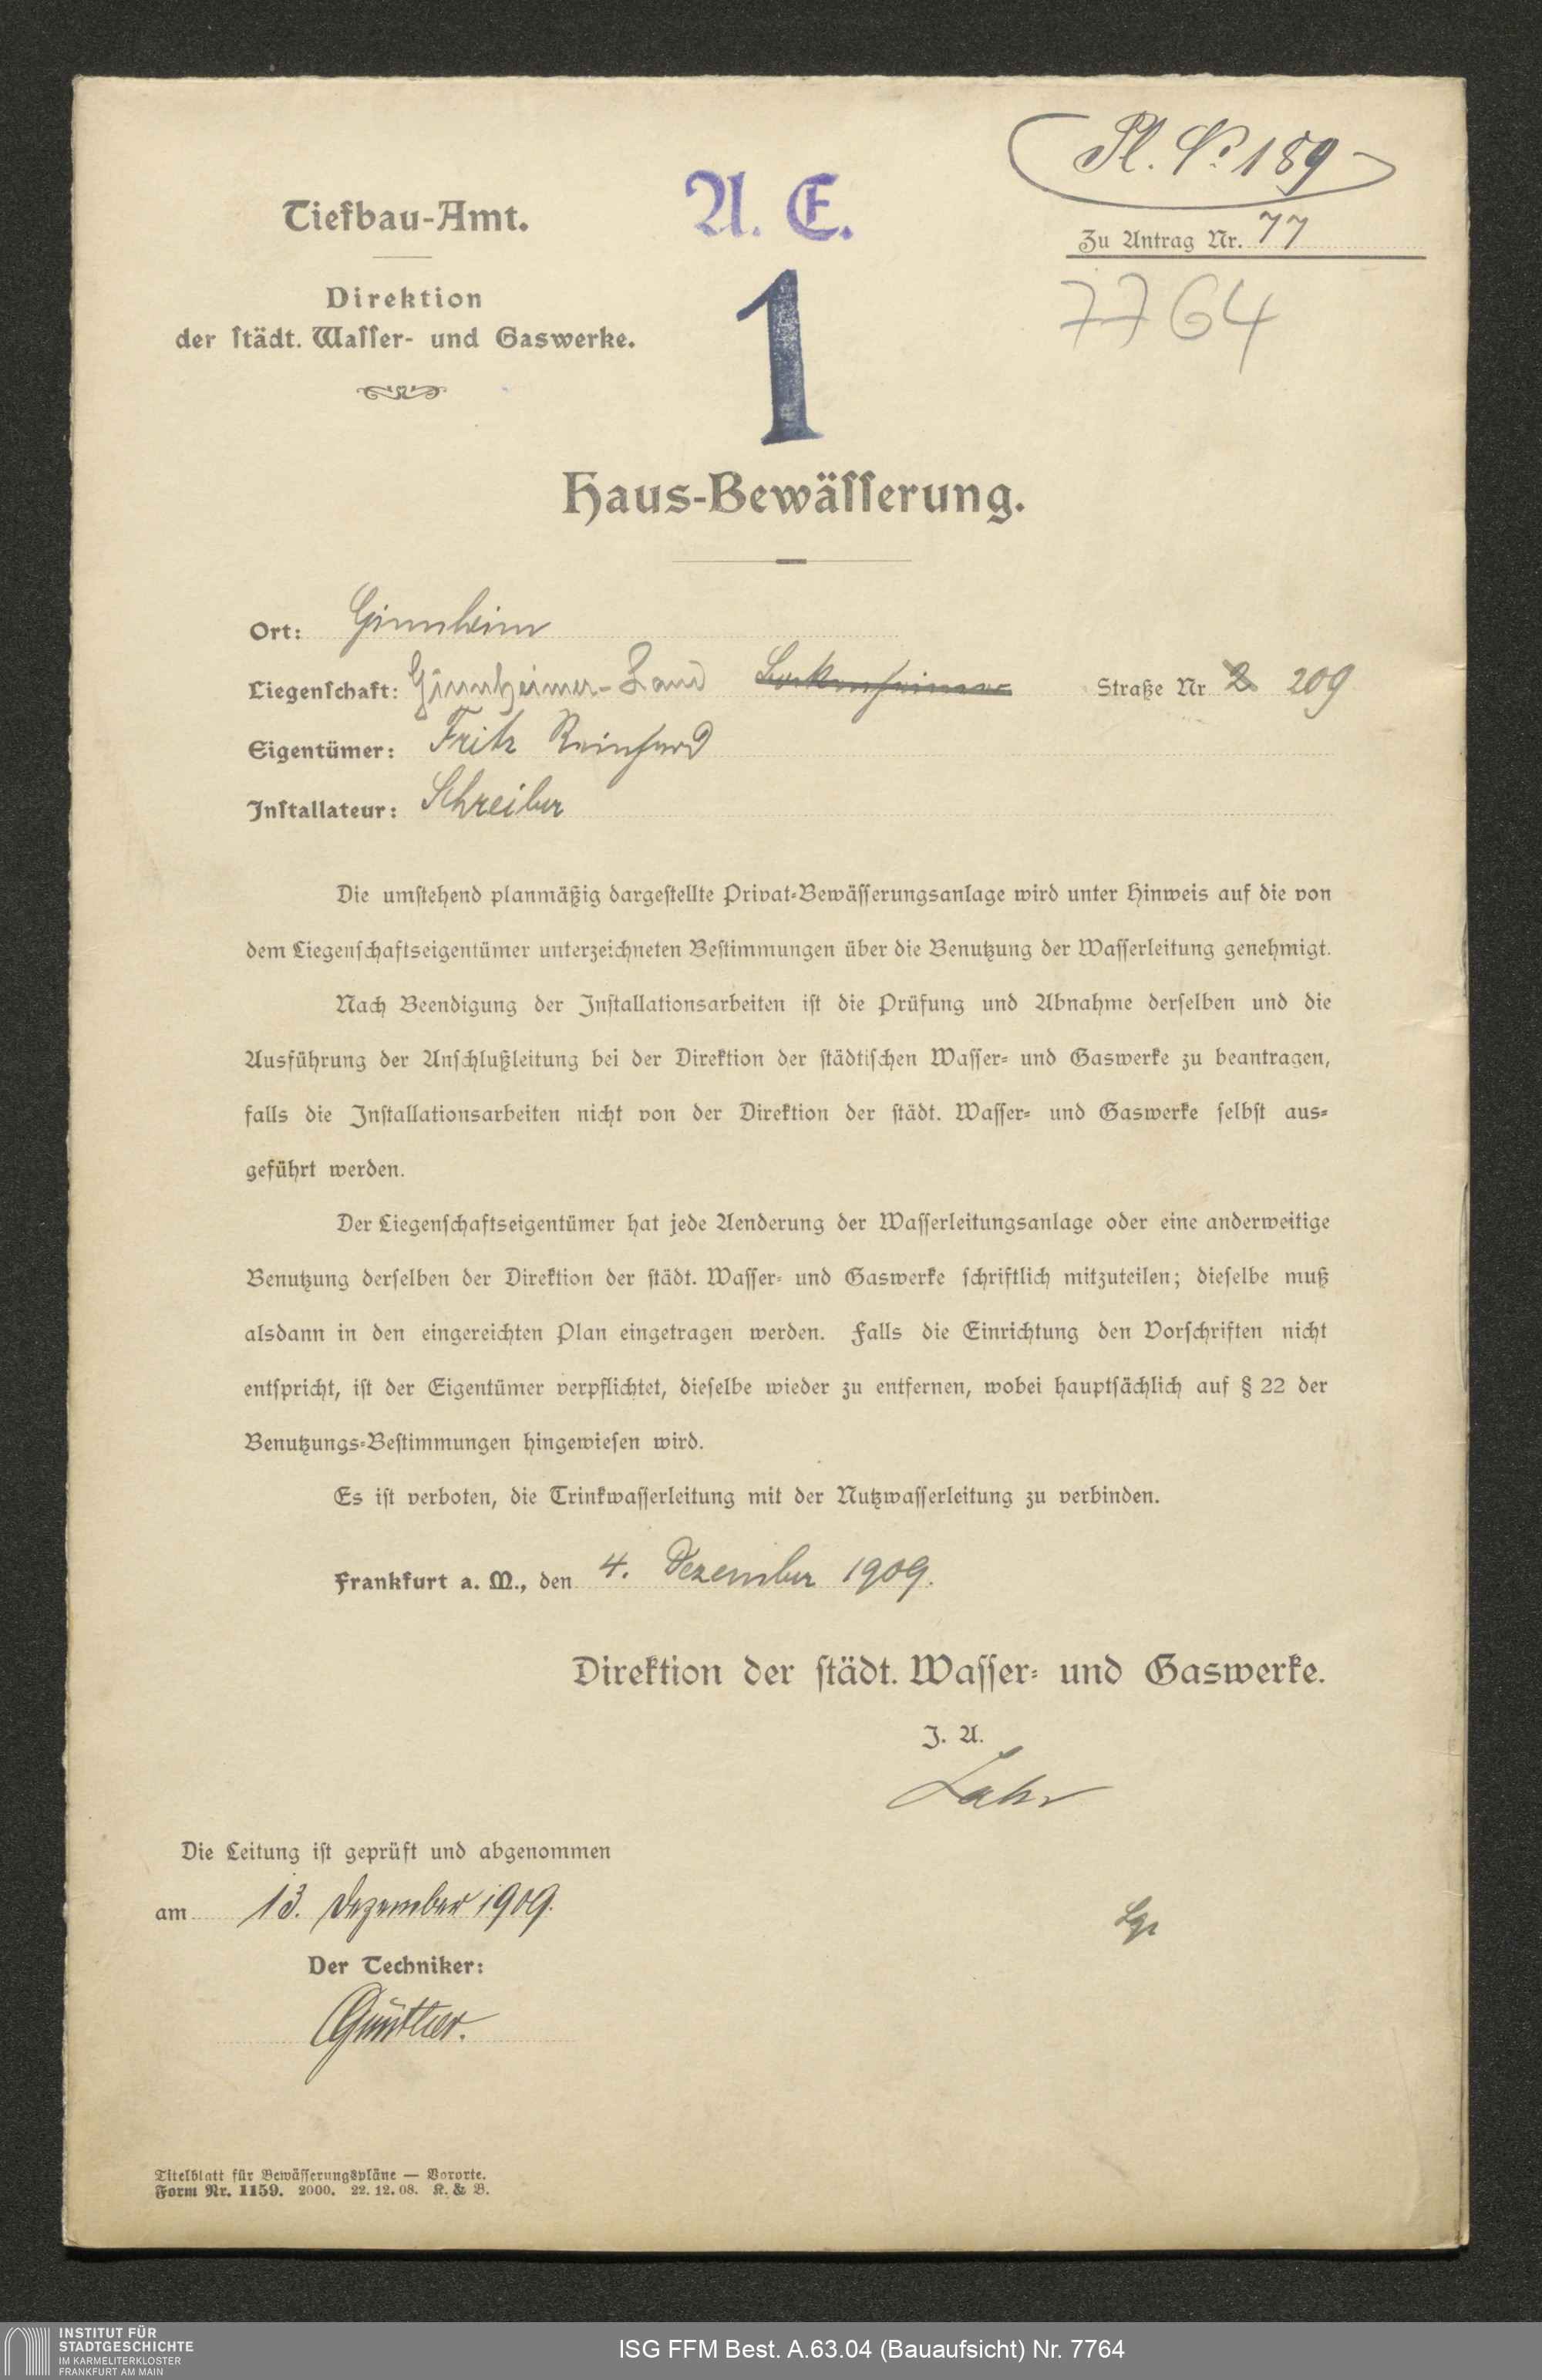 Pl. No 189
Tiefbau-Amt.
A. E.
Zu Antrag Nr. 77
7764
Direktion
der ſtädt. Waſſer- und Gaswerke.
1
Haus-Bewäſſerung.
Ort: Ginnheim
Liegenſchaft: Ginnheimer-Land Bockenheimer Straße Nr. 2 209
Eigentümer: Fritz Reinhard
Inſtallateur: Schreiber
Die umſtehend planmäßig dargeſtellte Privat-Bewäſſerungsanlage wird unter Hinweis auf die von
dem Liegenſchaftseigentümer unterzeichneten Beſtimmungen über die Benutzung der Waſſerleitung genehmigt.
Nach Beendigung der Inſtallationsarbeiten iſt die Prüfung und Abnahme derſelben und die
Ausführung der Anſchlußleitung bei der Direktion der ſtädtiſchen Waſſer- und Gaswerke zu beantragen,
falls die Inſtallationsarbeiten nicht von der Direktion der ſtädt. Waſſer- und Gaswerke ſelbſt aus-
geführt werden.
Der Liegenſchaftseigentümer hat jede Aenderung der Waſſerleitungsanlage oder eine anderweitige
Benutzung derſelben der Direktion der ſtädt. Waſſer- und Gaswerke ſchriftlich mitzuteilen; dieſelbe muß
alsdann in den eingereichten Plan eingetragen werden. Falls die Einrichtung den Vorſchriften nicht
entſpricht, iſt der Eigentümer verpflichtet, dieſelbe wieder zu entfernen, wobei hauptſächlich auf § 22 der
Benutzungs-Beſtimmungen hingewieſen wird.
Es iſt verboten, die Trinkwaſſerleitung mit der Nutzwaſſerleitung zu verbinden.
Frankfurt a. M., den 4. Dezember 1909.
Direktion der ſtädt. Waſſer- und Gaswerke.
J. A.
Lahr
Die Leitung iſt geprüft und abgenommen
am 13. Dezember 1909.
Der Techniker:
Günther.
Titelblatt für Bewäſſerungspläne — Vororte.
Form Nr. 1159. 2000. 22. 12. 08. K. & B.
INSTITUT FÜR
STADTGESCHICHTE
IM KARMELITERKLOSTER
FRANKFURT AM MAIN
ISG FFM Best. A.63.04 (Bauaufsicht) Nr. 7764